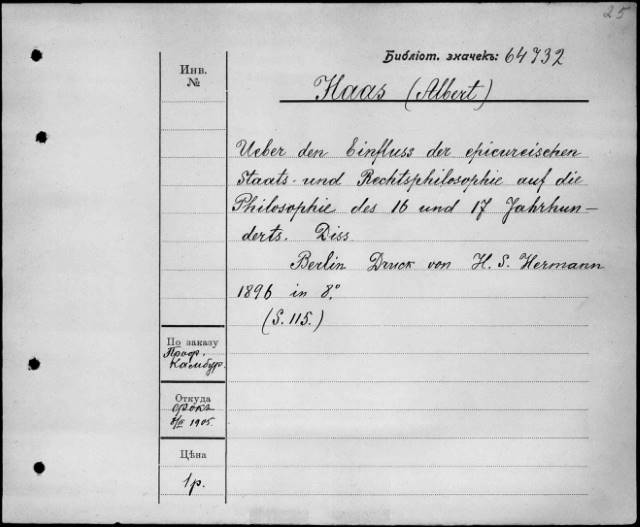 25
Библіот. значекъ: 64732
Инв.
№
Haas (Albert)
Ueber den Einfluss der epicureischen
Staats- und Rechtsphilosophie auf die
Philosophie des 16 und 17 Jahrhun-
derts. Diss
Berlin Druck von H. S. Hermann
1896 in 8°
(S. 115.)
По заказу
Проф.
Камбур.
Откуда
Фокъ
1905.
Цѣна
1 р.